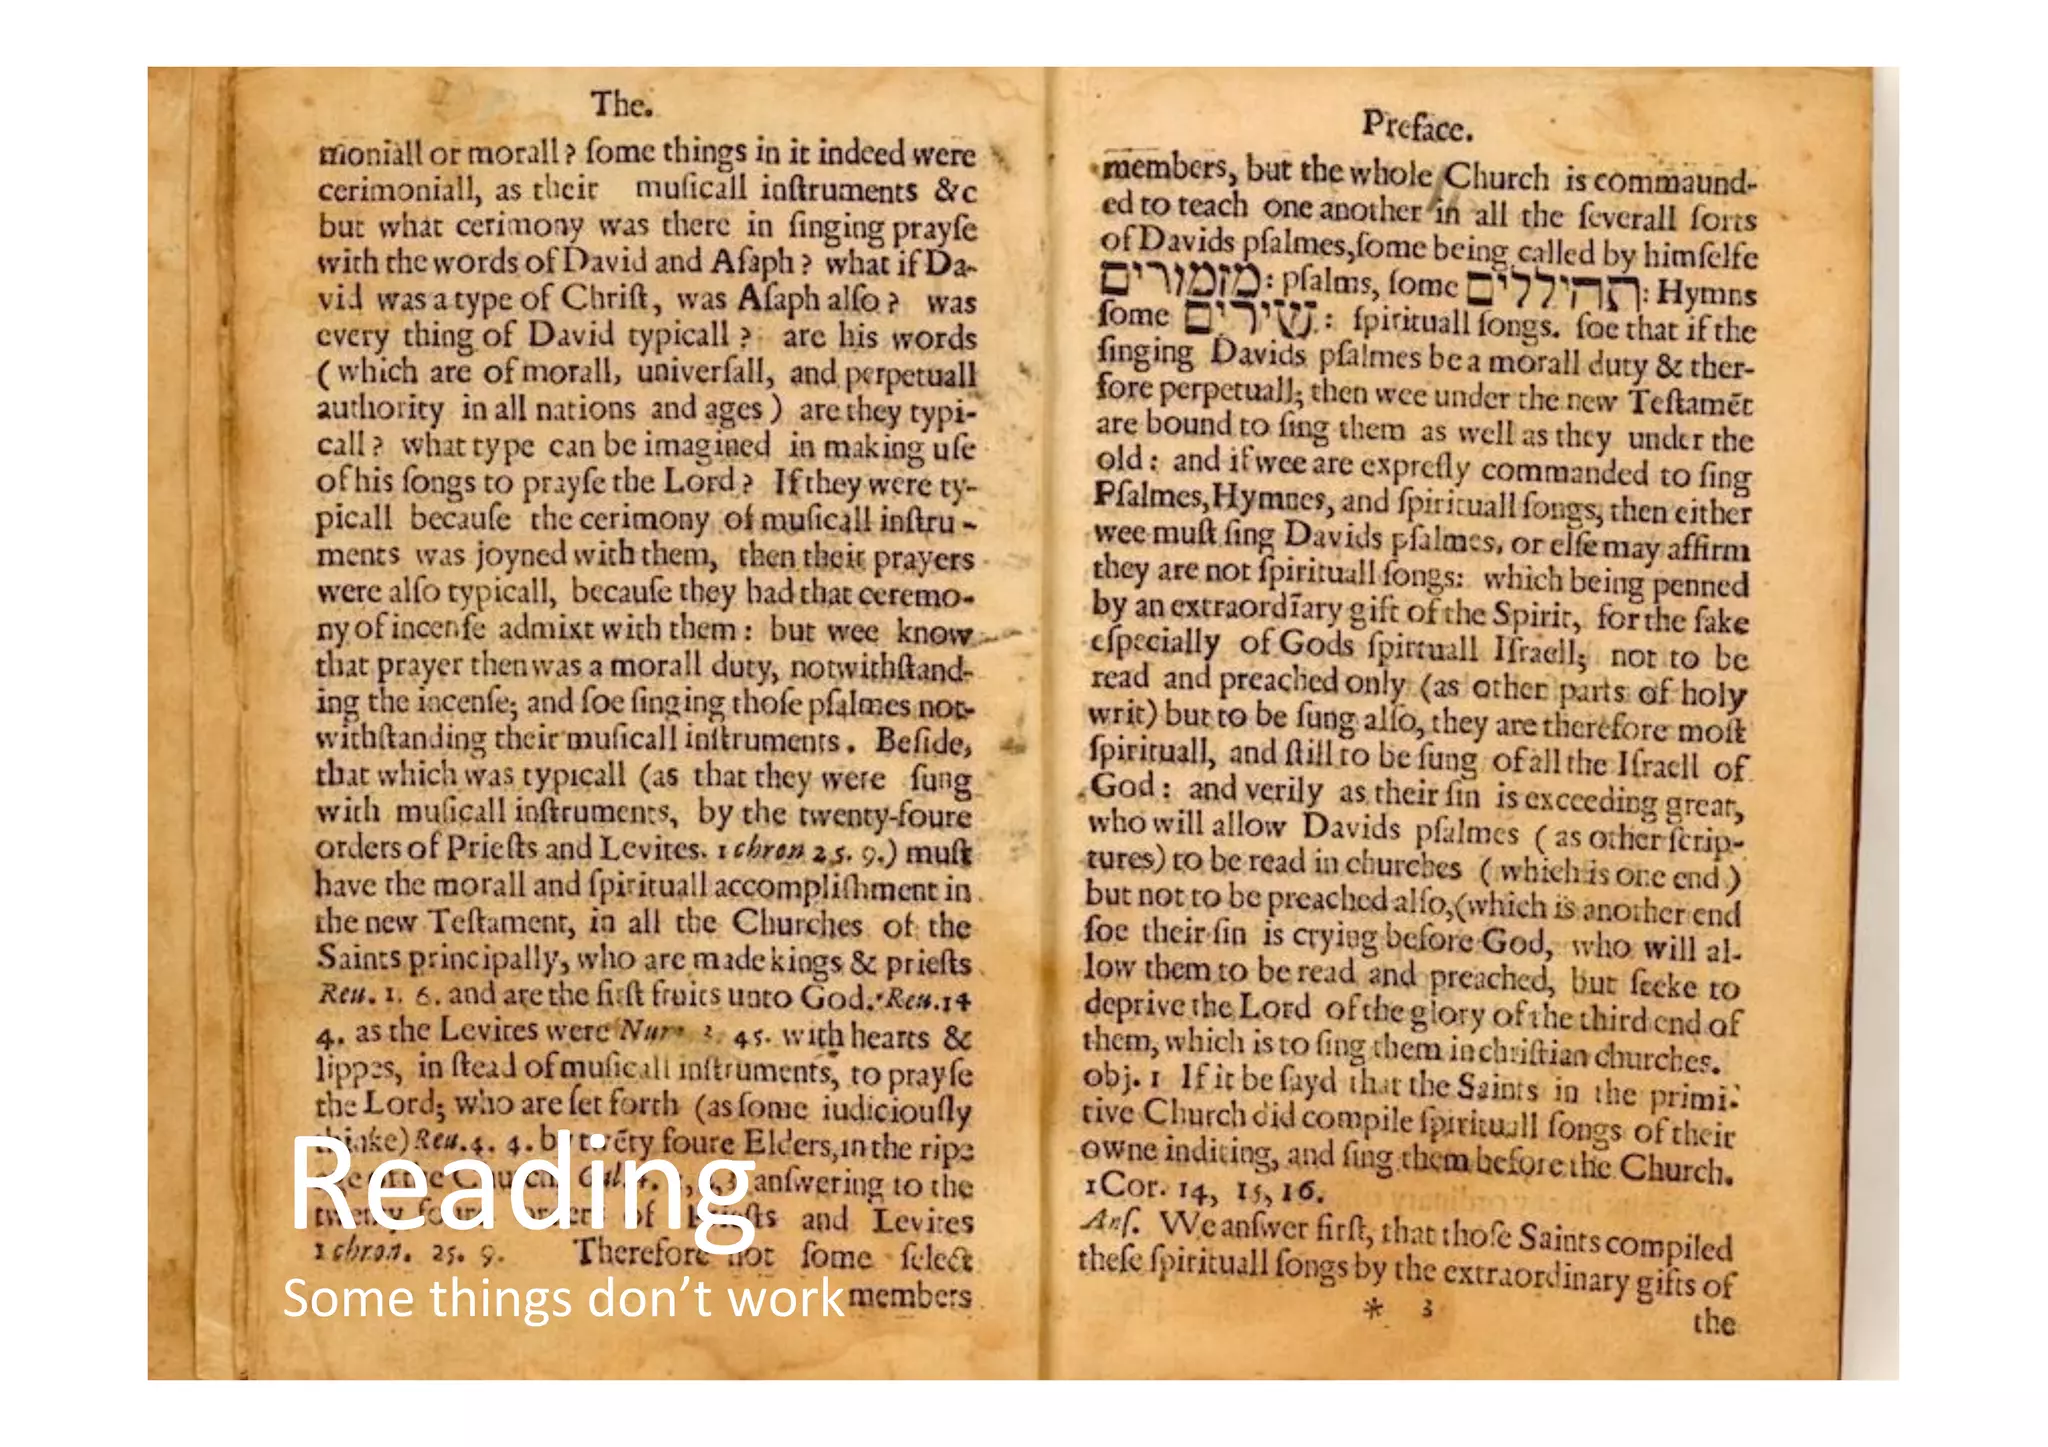 The.
moniall or morall? ſome things in it indeed were
cerimoniall, as their muſicall inſtruments &c
but what cerimony was there in ſinging prayſe
with the words of David and Aſaph? what if Da-
vid was a type of Chriſt, was Aſaph alſo? was
every thing of David typicall? are his words
(which are of morall, univerſall, and perpetuall
authority in all nations and ages) are they typi-
call? what type can be imagined in making uſe
of his ſongs to prayſe the Lord? If they were ty-
picall becauſe the cerimony of muſicall inſtru-
ments was joyned with them, then their prayers
were alſo typicall, becauſe they had that ceremo-
ny of incenſe admixt with them: but wee know
that prayer then was a morall duty, notwithſtand-
ing the incenſe; and ſoe ſinging thoſe pſalmes not-
withſtanding their muſicall inſtruments. Beſide,
that which was typicall (as that they were ſung
with muſicall inſtruments, by the twenty-foure
orders of Prieſts and Levites. 1 chron 25. 9.) muſt
have the morall and ſpirituall accompliſhment in
the new Teſtament, in all the Churches of the
Saints principally, who are made kings & prieſts
Reu. 1. 6. and are the firſt fruits unto God. Reu. 14
4. as the Levites were 45. with hearts &
lippes, in ſtead of muſicall inſtruments, to prayſe
the Lord; who are ſet forth (as ſome iudiciouſly
thinke) Reu. 4. 4. by twẽty foure Elders, in the ripe
age of the Church. Gal. 4. anſwering to the
twenty foure orders of Prieſts and Levites
1 chron. 25. 9. Therefore not ſome ſelect
members
Reading
Some things don’t work
Preface.
members, but the whole Church is commaund-
ed to teach one another in all the ſeverall ſorts
of Davids pſalmes, ſome being called by himſelfe
מזמורים: pſalms, ſome תהיללים: Hymns
ſome שירים: ſpirituall ſongs. ſoe that if the
ſinging Davids pſalmes be a morall duty & ther-
fore perpetuall; then wee under the new Teſtamẽt
are bound to ſing them as well as they under the
old: and if wee are expreſly commanded to ſing
Pſalmes, Hymnes, and ſpirituall ſongs, then either
wee muſt ſing Davids pſalmes, or elſe may affirm
they are not ſpirituall ſongs: which being penned
by an extraordīary gift of the Spirit, for the ſake
eſpecially of Gods ſpirtuall Iſraell; not to be
read and preached only (as other parts of holy
writ) but to be ſung alſo, they are therefore moſt
ſpirituall, and ſtill to be ſung of all the Iſraell of
God: and verily as their ſin is exceeding great,
who will allow Davids pſalmes (as other ſcrip-
tures) to be read in churches (which is one end)
but not to be preached alſo, (which is another end
ſoe their ſin is crying before God, who will al-
low them to be read and preached, but ſeeke to
deprive the Lord of the glory of the third end of
them, which is to ſing them in chriſtian churches.
obj. 1 If it be ſayd that the Saints in the primi-
tive Church did compile ſpirituall ſongs of their
owne inditing, and ſing them before the Church.
1Cor. 14, 15, 16.
Anſ. We anſwer firſt, that thoſe Saints compiled
theſe ſpirituall ſongs by the extraordinary gifts of
* 3
the